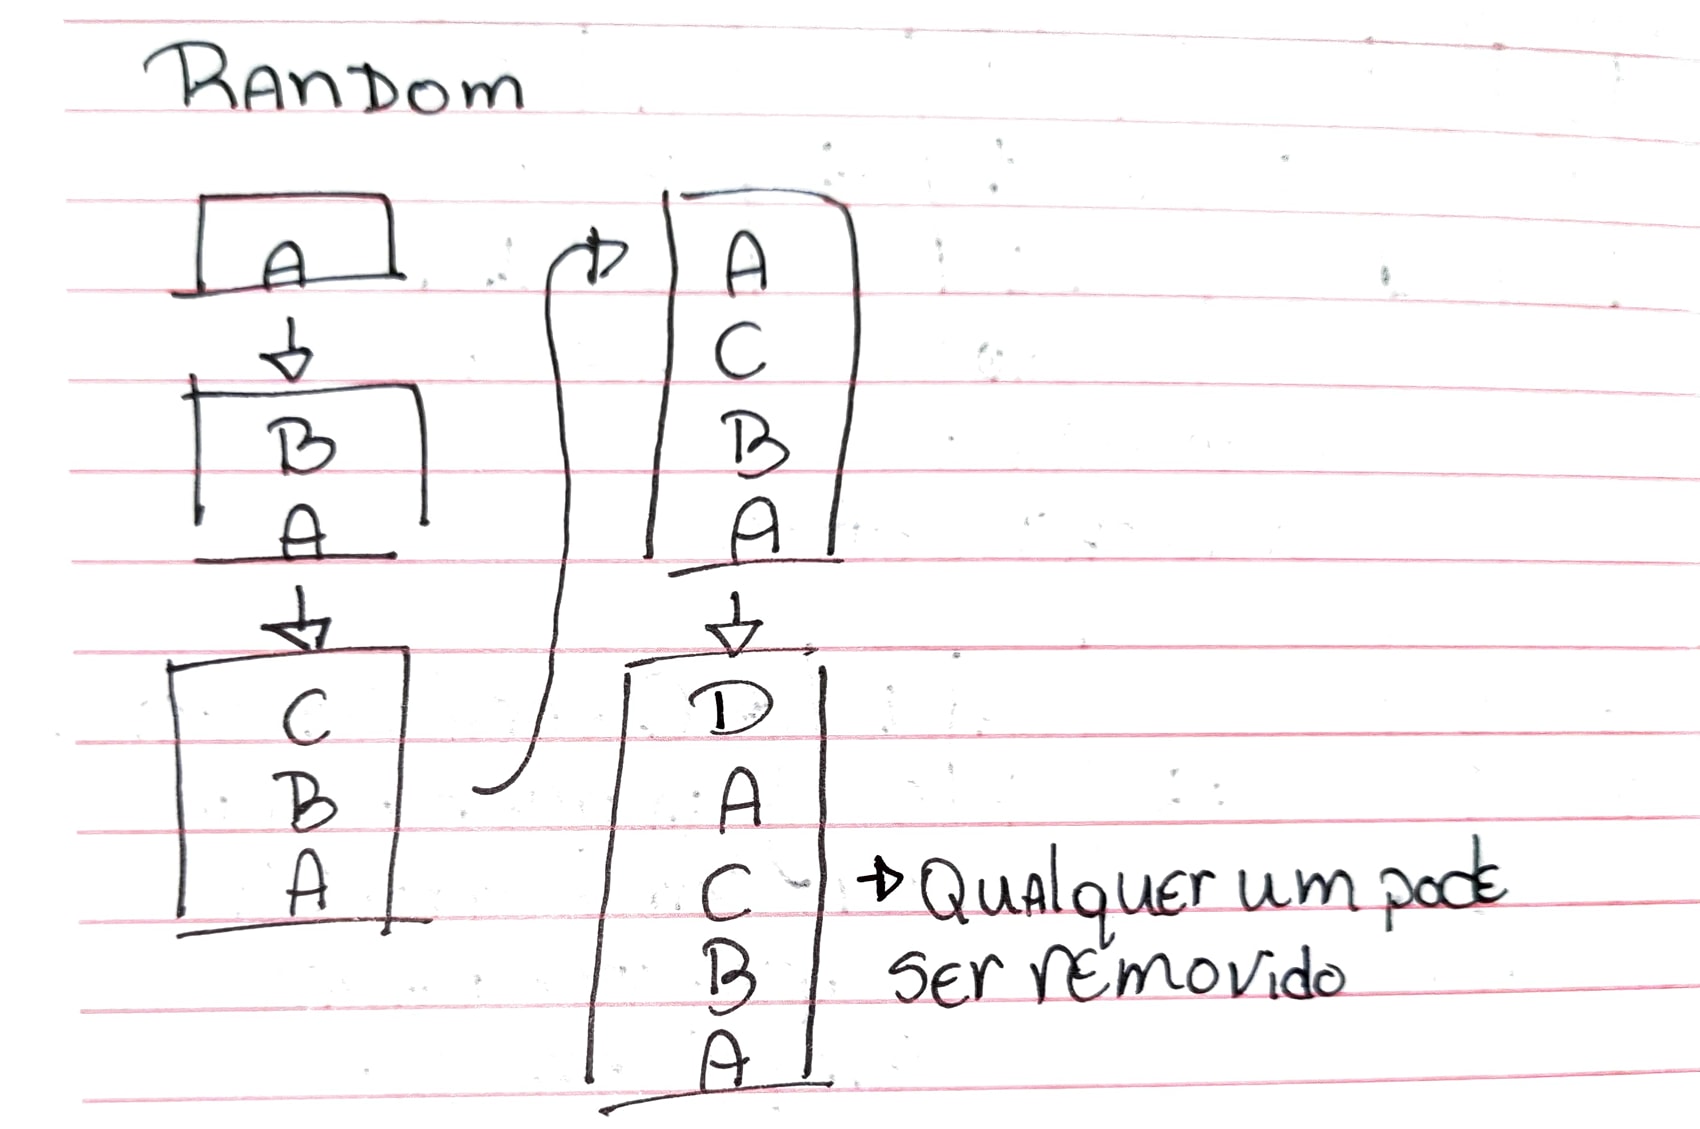 RAnDom
A
B
A
C
B
A
A
C
B
A
D
A
C
B
A
QuAlquEr um podE
SEr rEmovido